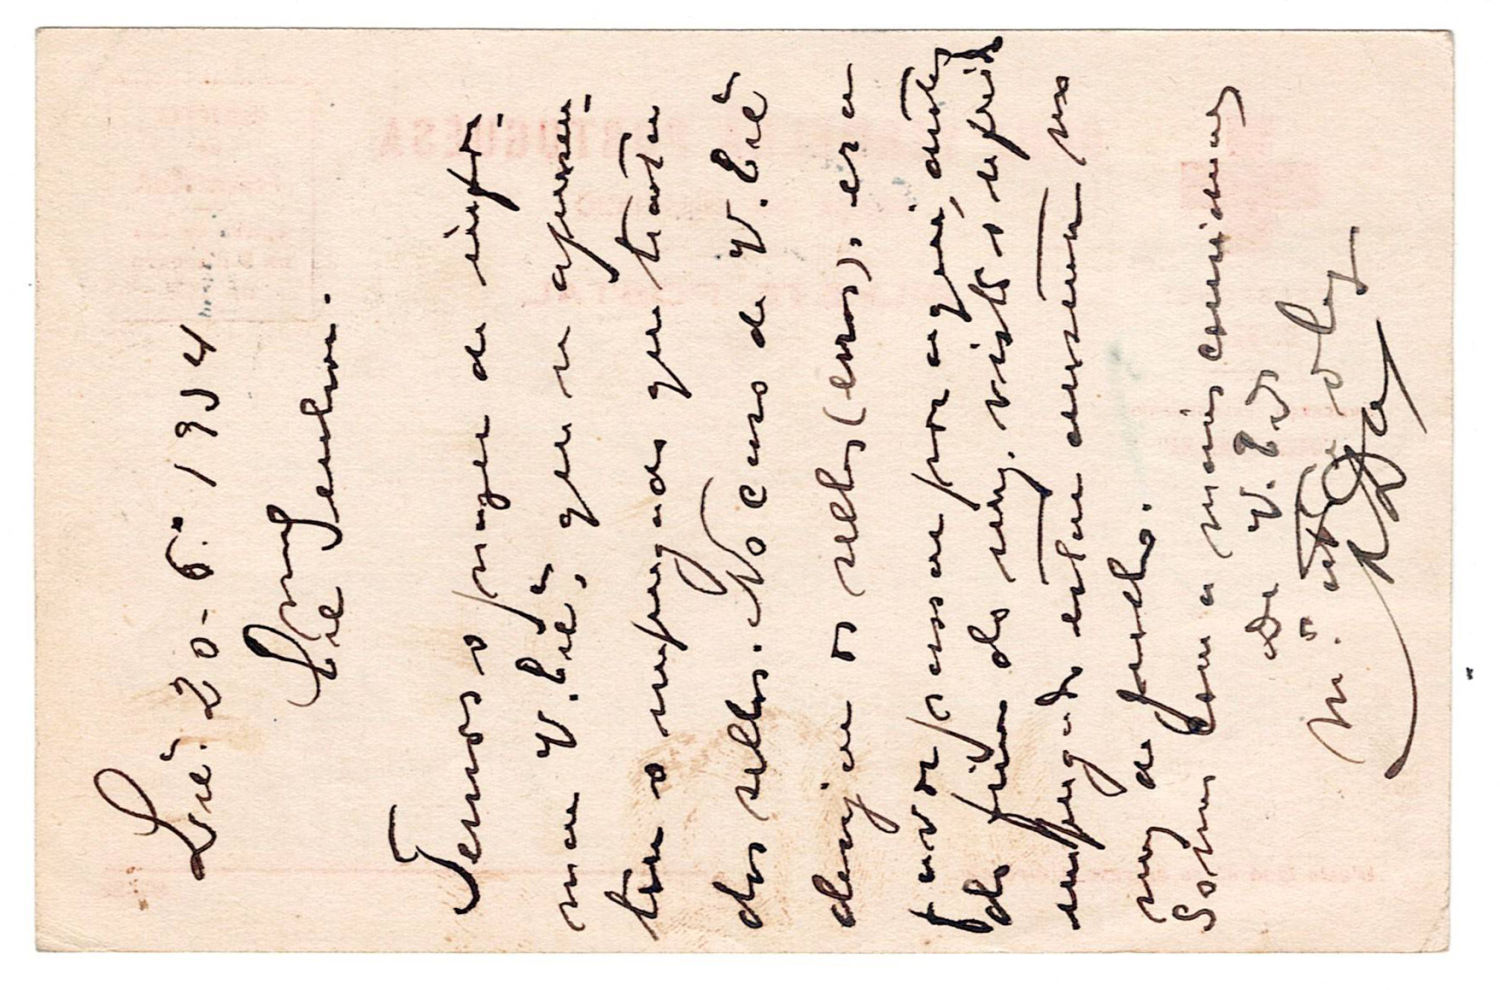 Lxª. 20-5º-1934
Exmº Senhor.
Temos o prazer de infor-
mar V. Exª, que se apresen-
tou o empregado que trata
dos sellos. No caso de V. Exª
deseje os sellos (envos), era
favor passar por aqui, antes
do fim do mez, visto o referido
empregado estar ausente no
mez de Junho.
Somos com a maior consideração
De V. Ex.
Mº Attº